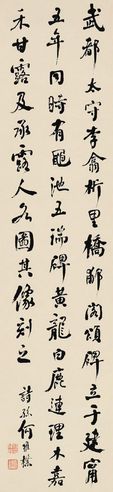 武都太守李翕析里橋郙閣頌碑立于建甯
五年同時有黽池五瑞碑黃龍白鹿連理木嘉
禾甘露及承露人各圖其像刻之
詩孫何維樸